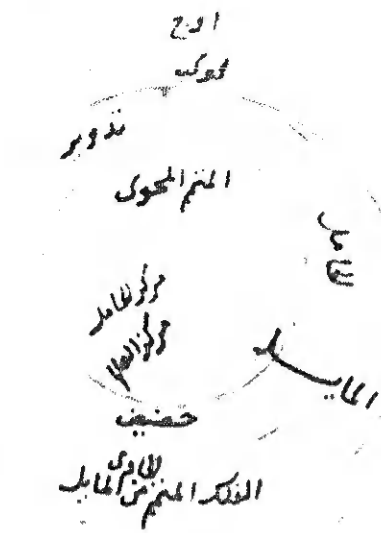 اوج
كوكب
تدوير
المتمم المحوى
الحامل
مركز الحامل
مركز العالم
المايــل
حضيض
الحاوى
الفلك المتمم من المايل